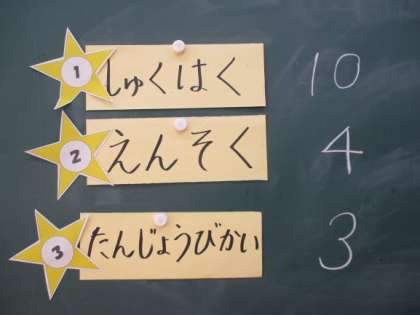 1 しゅくはく 10
2 えんそく 4
3 たんじょうびかい 3